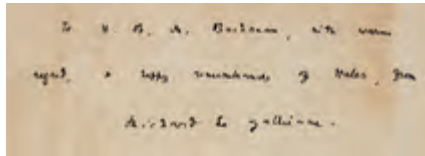 To H. B. A. Buchanan, with warm
regard, & happy remembrance of Wales, from
Richard Le Gallienne.